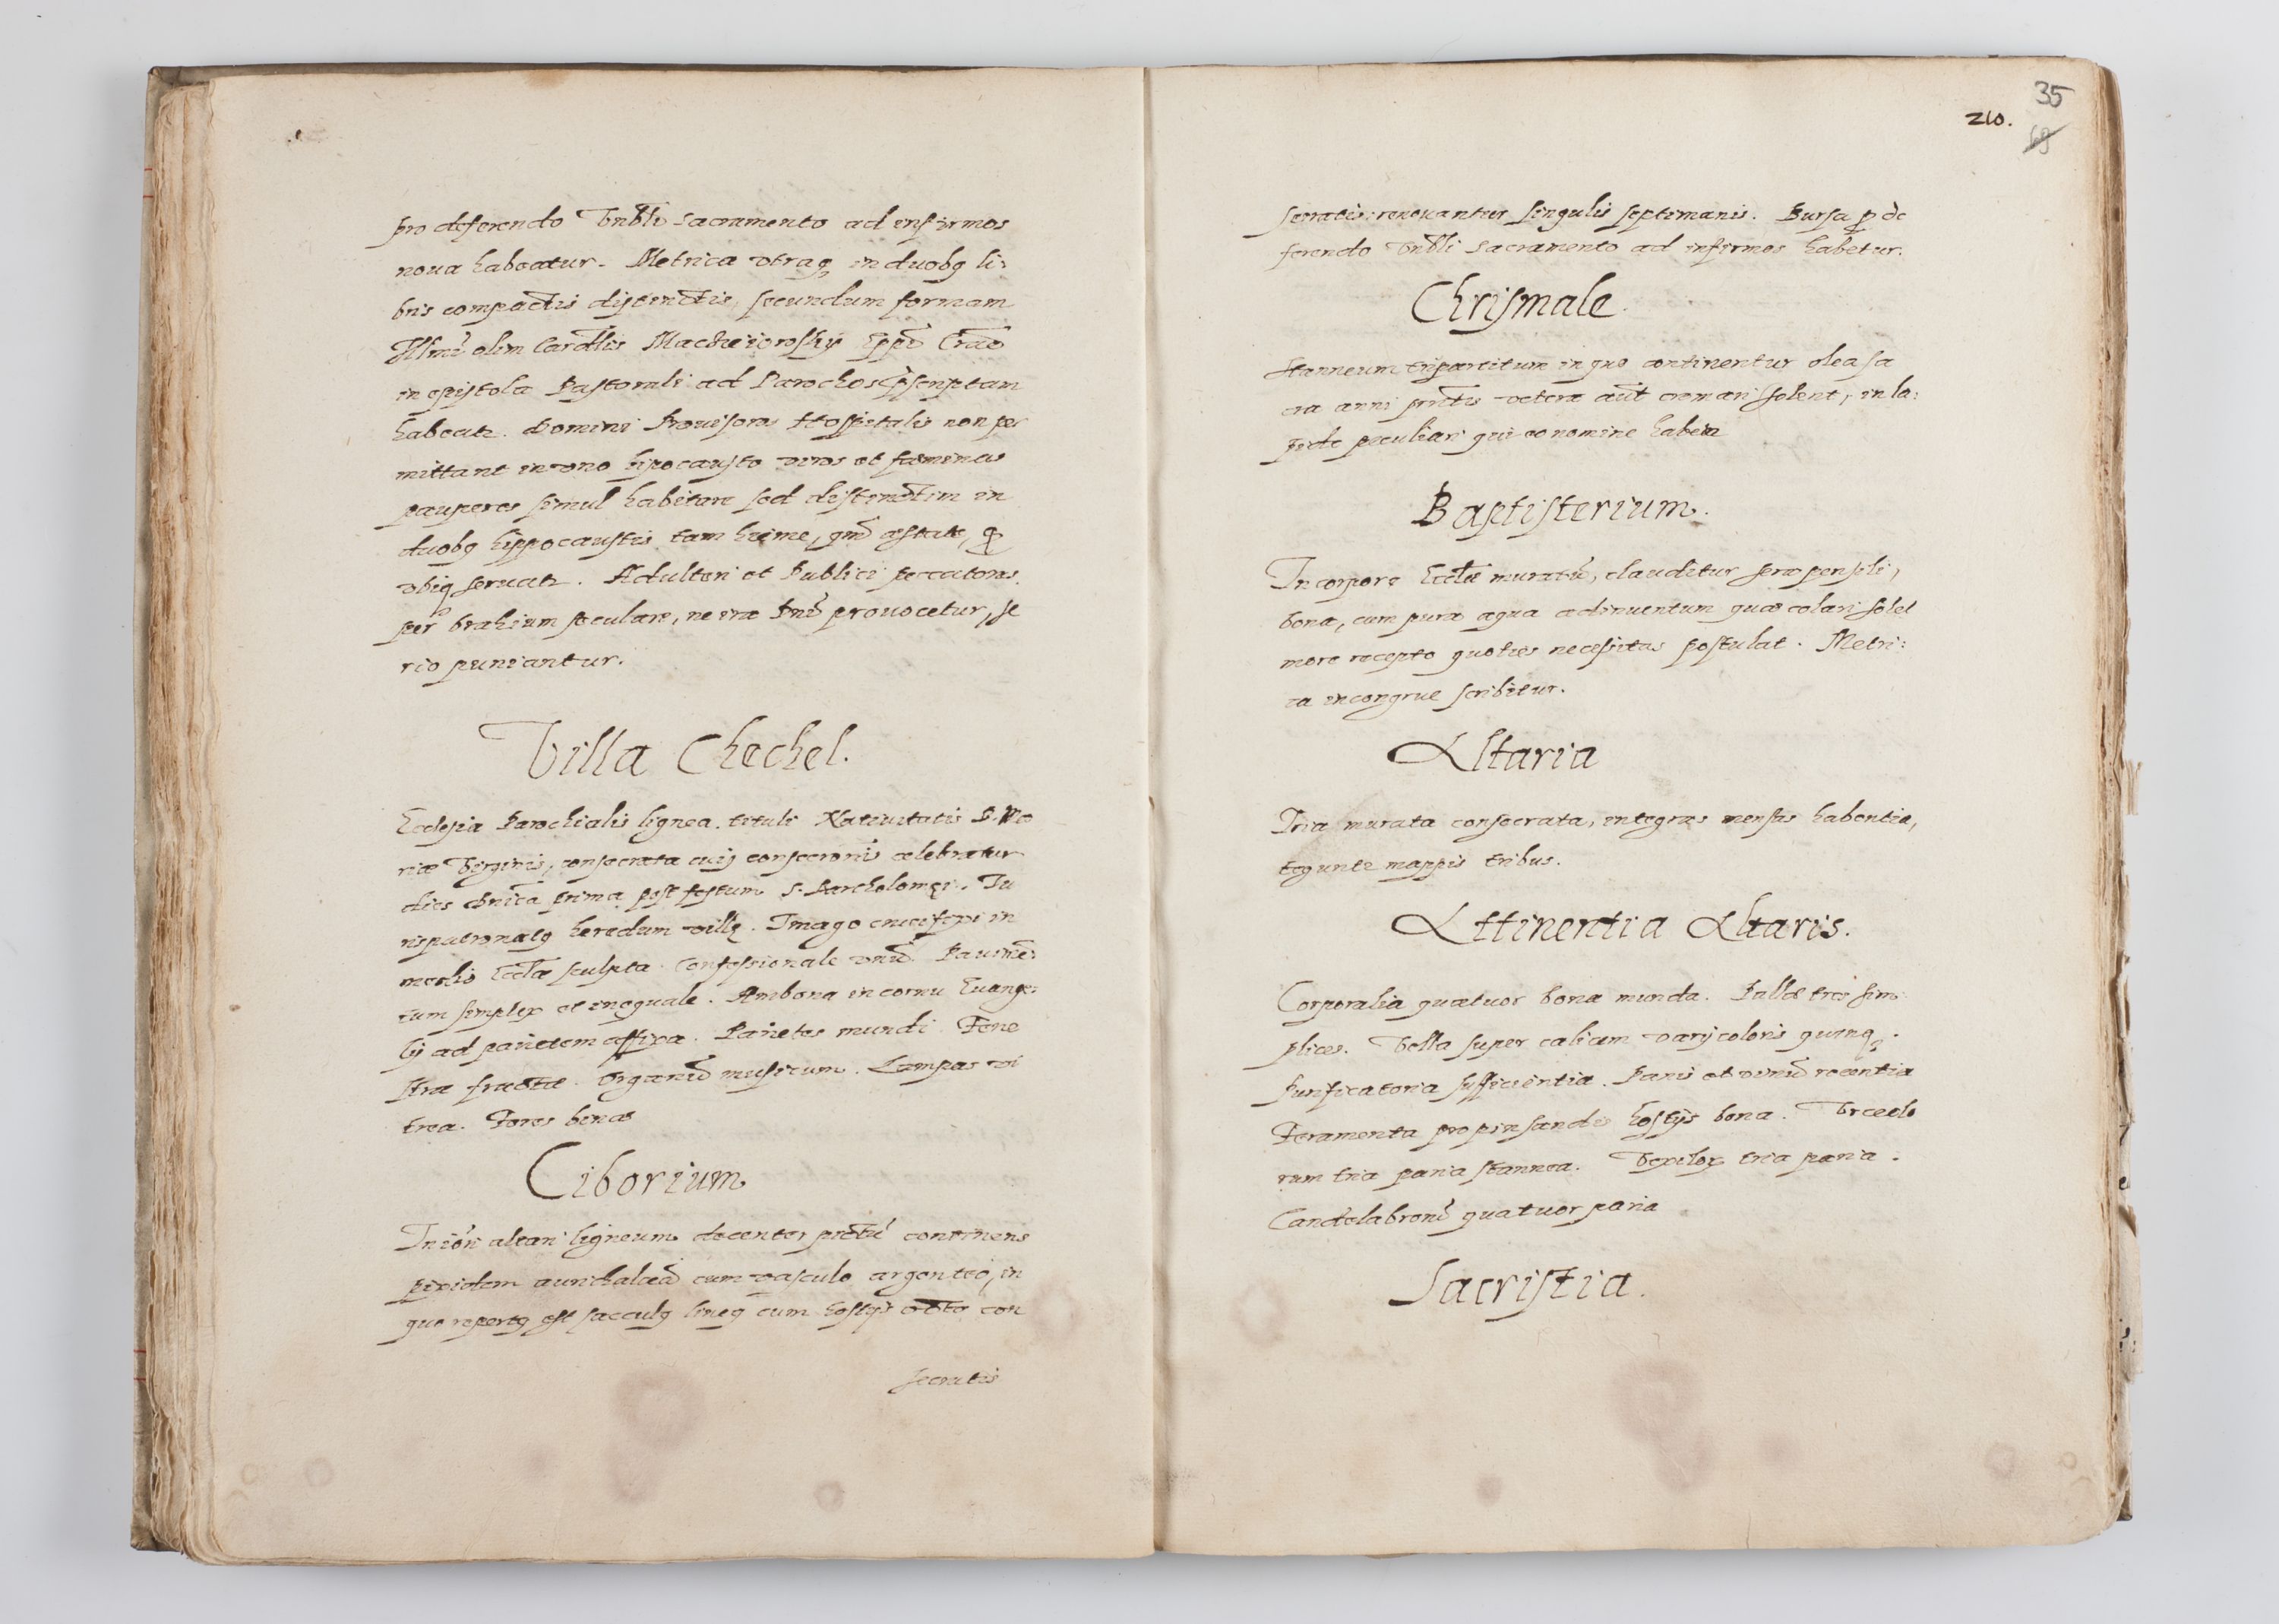 pro deferendo Vnbli sacramento ad infirmos
noua habeatur. Metrica vtraq in duobq li:
bris compactis distinctis, secundum formam
Illmi olim Cardlis Macieiowskij Eppi Crac
in epistola Pastorali ad Parochos scriptam
habeatr. Domini Prouisores Hospitalis non per
mittant in vno hipocausto viros et fæminas
pauperes simul habitare sed distinctim in
duobq hippocaustis tam hieme, qm æstate,
vbiq seruatr. Adulteri et Publici peccatores
per brahium seculare, ne ira Dni prouocetur, se
rio puniantur.
Villa Chechel.
Ecclesia Parochialis lignea. tituli Natiuitatis B. Ma
riæ Virginis, consecrata cuiq consecronis celebratur
dies dnica prima post festum S. Bartholomęi. Iu
rispatronatq heredum villę. Imago crucifixi in
medio Eccliæ sculpta. Confessionale vnu. Pauime:
tum simplex et inequale. Ambona in cornu Euange:
lij ad parietem affixa. Parietes mundi. Fene
stræ fractæ. Organu musicum. Lampas vi
trea. Fores binæ
Ciborium
In altari ligneum decenter pictu continens
pixidem aurichalcea cum vasculo argenteo, in
quo repertq est sacculq lineq cum hostijs con
secratis
35
210.
69
secratis: renouantur singulis septimanis. Bursa p de
ferendo Vnbli sacramento ad infirmos habetur.
Chrismale.
Stanneum tripartitum in quo continentur olea sa
cra anni pntis vetera aut cremari solent, in la:
pide peculiari qui eo nomine habetr
Baptisterium.
In corpore Eccliæ muratu, clauditur sera pensili,
bona, cum pura aqua adinuentum quæ colari solet
more recepto quoties necessitas postulat. Metri:
ca incongrue scribitur.
Altaria
Tria murata consecrata, integras mensas habentia,
teguntr mappis tribus.
Attinentia Altaris.
Corporalia quatuor bona munda. Pallæ tres sim
plices. Vella super calicem varij coloris quinq.
Purificatoria sufficientia. Panis et vinu recentia
Feramenta pro pinsandis hostijs bona. Vrceolo
rum tria paria stannea. Vexilor tria paria.
Candelabroru quatuor paria
Sacristia.